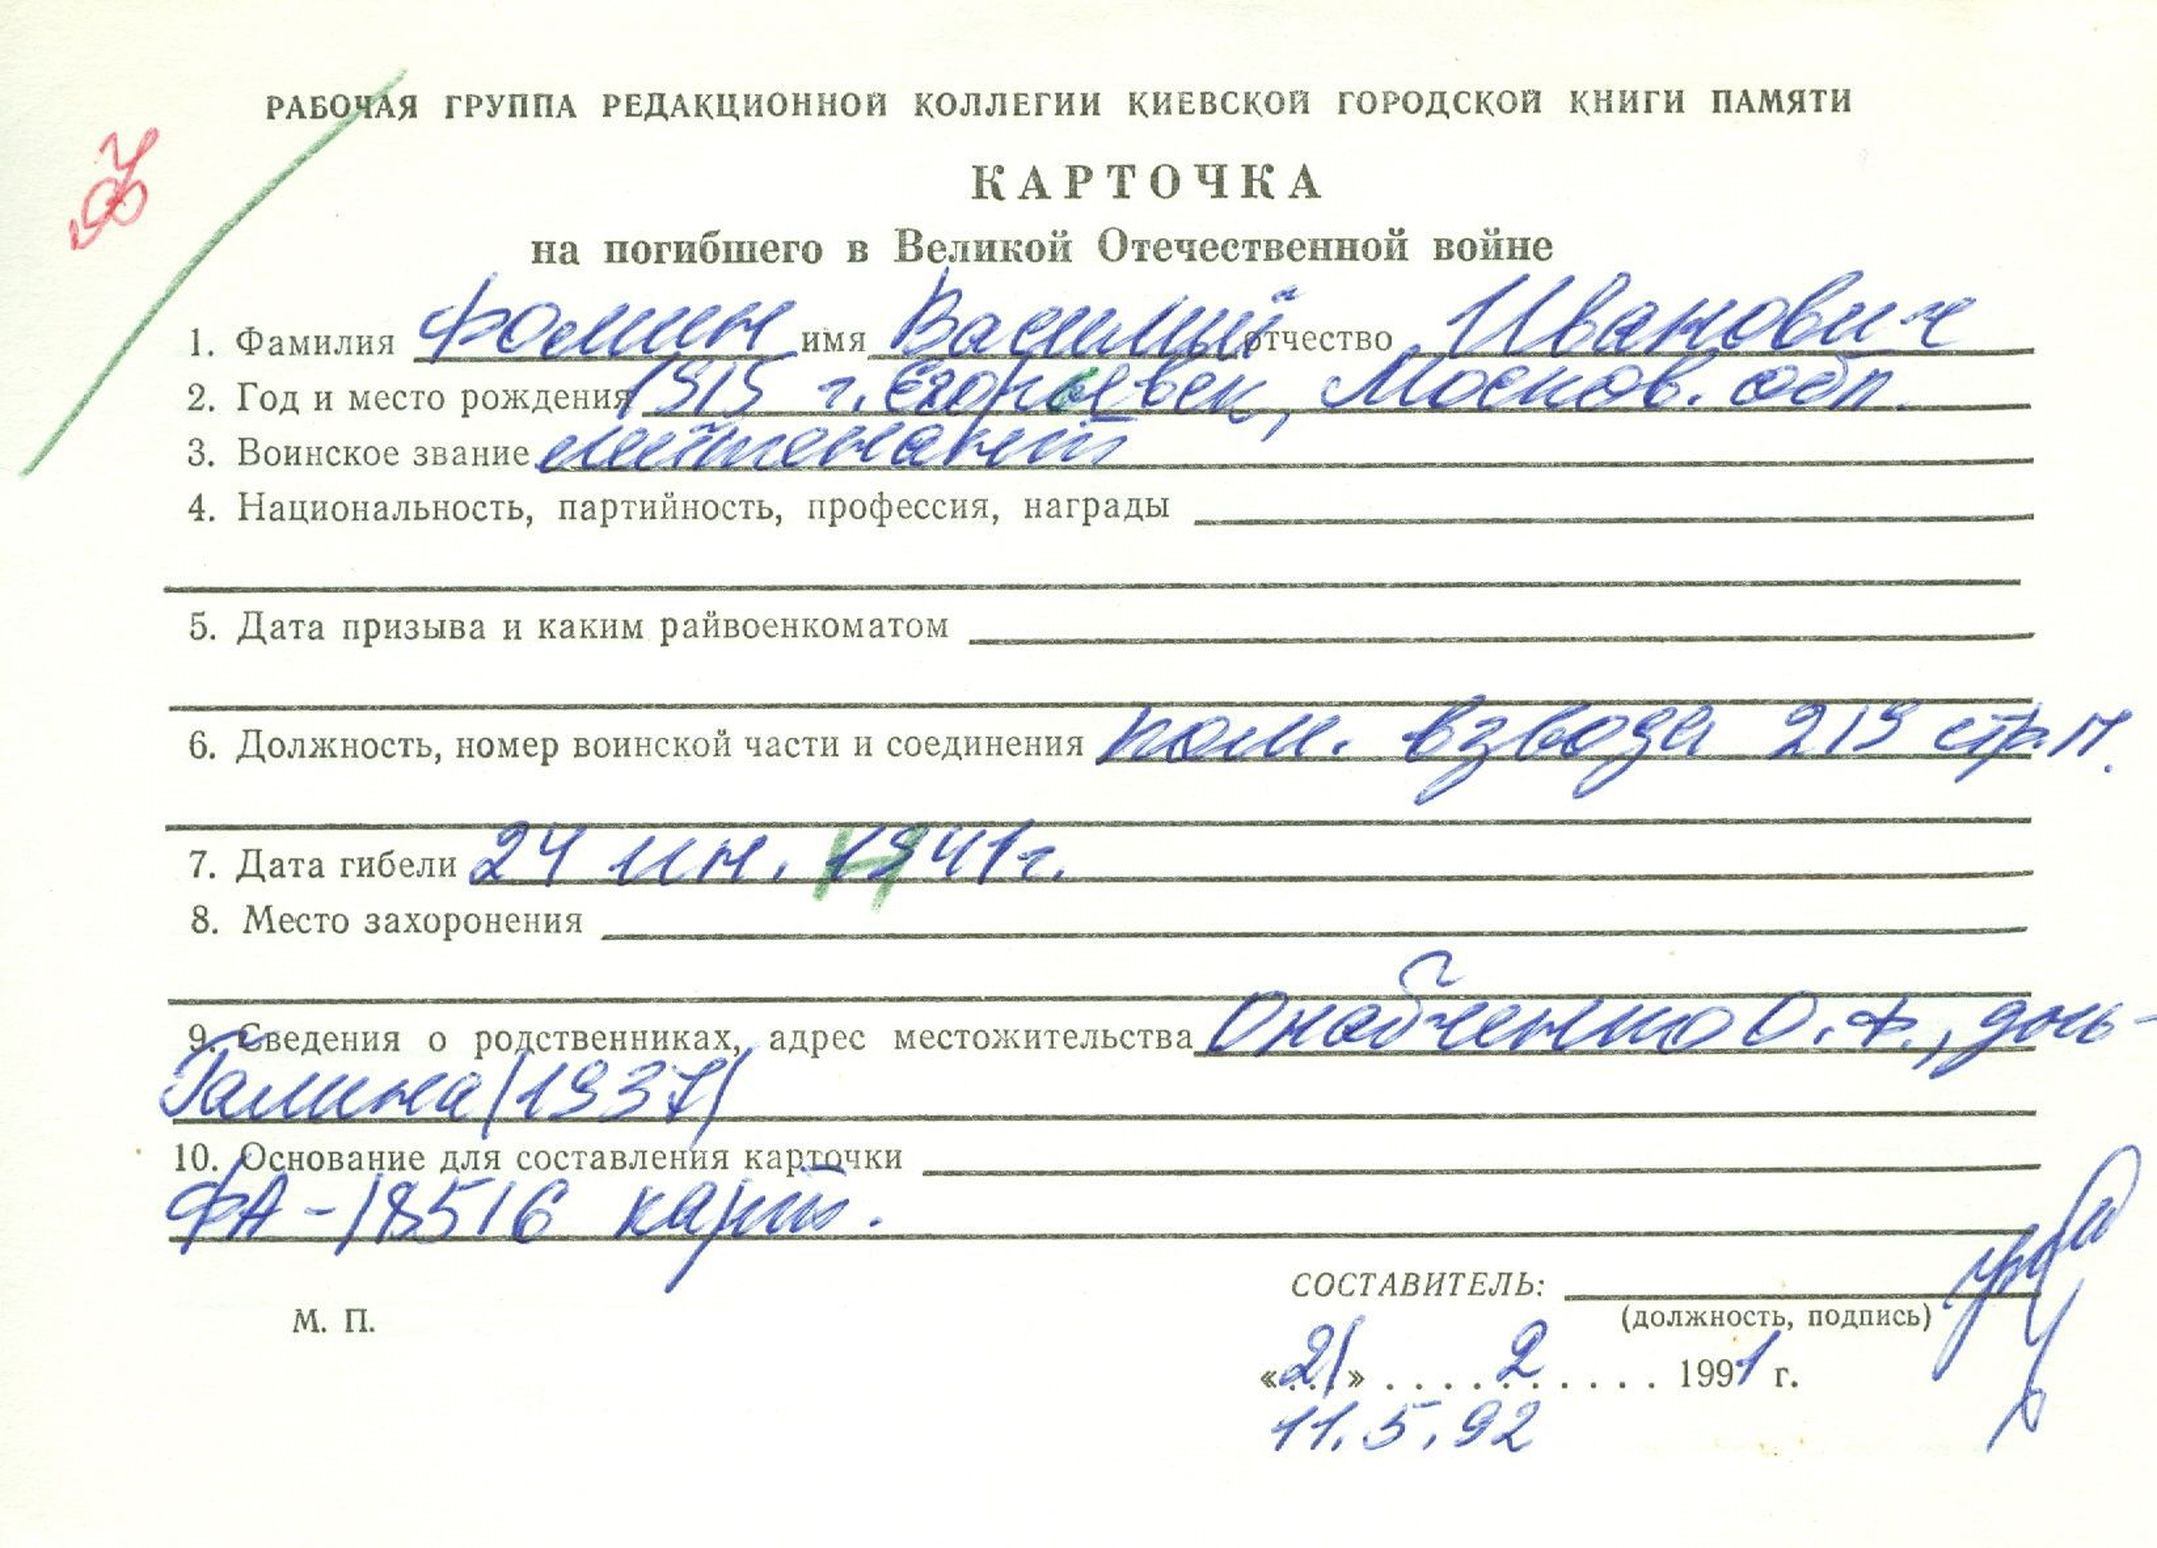 РАБОЧАЯ ГРУППА РЕДАКЦИОННОЙ КОЛЛЕГИИ КИЕВСКОЙ ГОРОДСКОЙ КНИГИ ПАМЯТИ
КАРТОЧКА
на погибшего в Великой Отечественной войне
1. Фамилия Фомин имя Василий отчество Иванович
2. Год и место рождения 1915 г. Егорьевск, Москов. обл.
3. Воинское звание лейтенант
4. Национальность, партийность, профессия, награды
5. Дата призыва и каким райвоенкоматом
6. Должность, номер воинской части и соединения ком. взвода 219 стр. п.
7. Дата гибели 24 ин. 1941 г.
8. Место захоронения
9. Сведения о родственниках, адрес местожительства О. Ф., дочь-
Галина /1937/
10. Основание для составления карточки
ФА-18516 карт.
СОСТАВИТЕЛЬ:
М. П.
(должность, подпись)
«21» 2 1991 г.
11.5.92